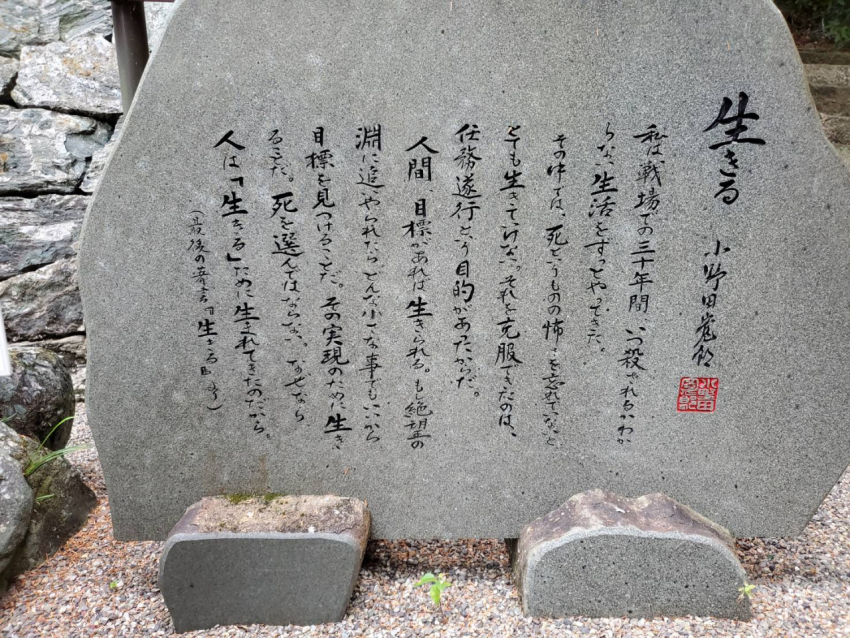 生きる　小野田寛郎
私は戦場での三十年間、いつ殺されるかわか
らない生活をずっとやってきた。
その中では、死というものの怖さを忘れていないと、
とても生きていけない。それを克服できたのは、
任務遂行という目的があったからだ。
人間、目標があれば生きられる。もし絶望の
淵に追いやられたらどんな小さな事でもいいから
目標を見つけることだ。その実現のために生き
ることだ。死を選んではならない、なぜなら
人は「生きる」ために生まれてきたのだから。
（最後の著書「生きる」より）